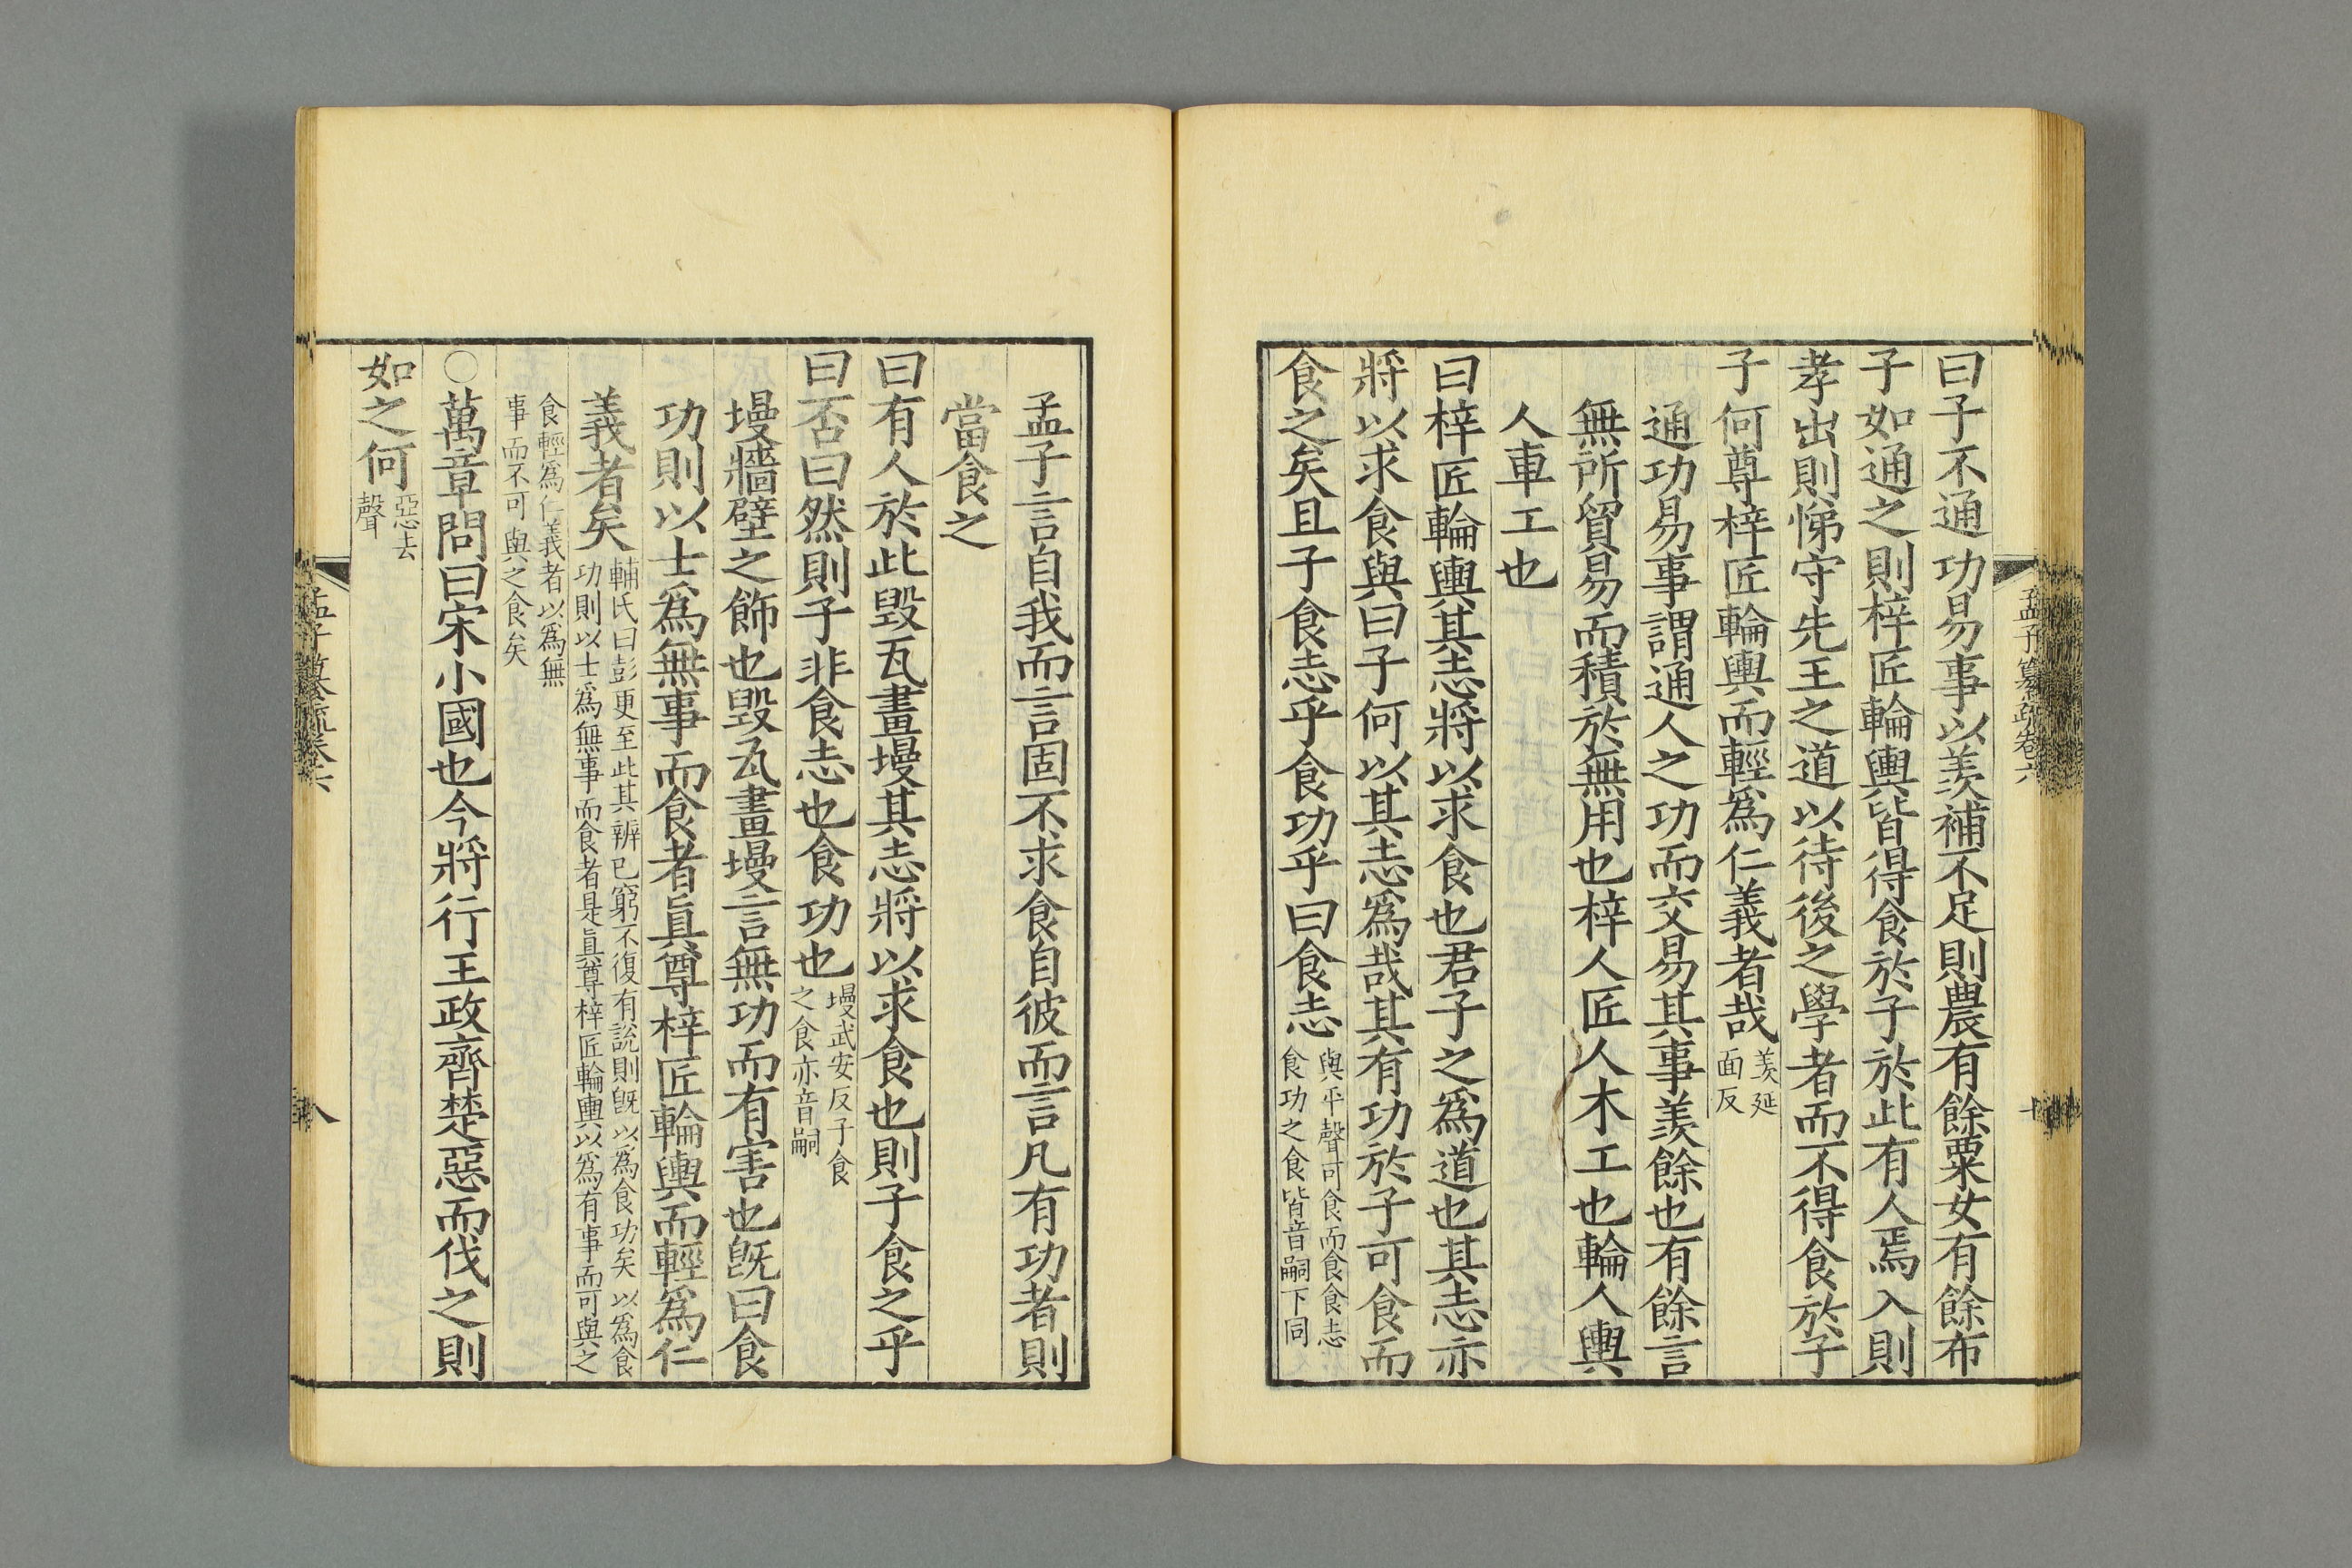 孟子纂疏卷六
曰子不通功易事以羨補不足則農有餘粟女有餘布
子如通之則梓匠輪輿皆得食於子於此有人焉入則
孝出則悌守先王之道以待後之學者而不得食於子
子何尊梓匠輪輿而輕爲仁義者哉羨延
面反
通功易事謂通人之功而交易其事羨餘也有餘言
無所貿易而積於無用也梓人匠人木工也輪人輿
人車工也
曰梓匠輪輿其志將以求食也君子之爲道也其志亦
將以求食與曰子何以其志爲哉其有功於子可食而
食之矣且子食志乎食功乎曰食志與平聲可食而食食志
食功之食皆音嗣下同
孟子言自我而言固不求食自彼而言凡有功者則
當食之
曰有人於此毀瓦畫墁其志將以求食也則子食之乎
曰否曰然則子非食志也食功也墁武安反子食
之食亦音嗣
墁牆壁之飾也毀瓦畫墁言無功而有害也旣曰食
功則以士爲無事而食者眞尊梓匠輪輿而輕爲仁
義者矣輔氏曰彭更至此其辨已窮不復有說則旣以爲食功矣以爲食
功則以士爲無事而食者是眞尊梓匠輪輿以爲有事而可與之
食輕爲仁義者以爲無
事而不可與之食矣
○萬章問曰宋小國也今將行王政齊楚惡而伐之則
如之何惡去
聲
孟子纂疏卷六
八